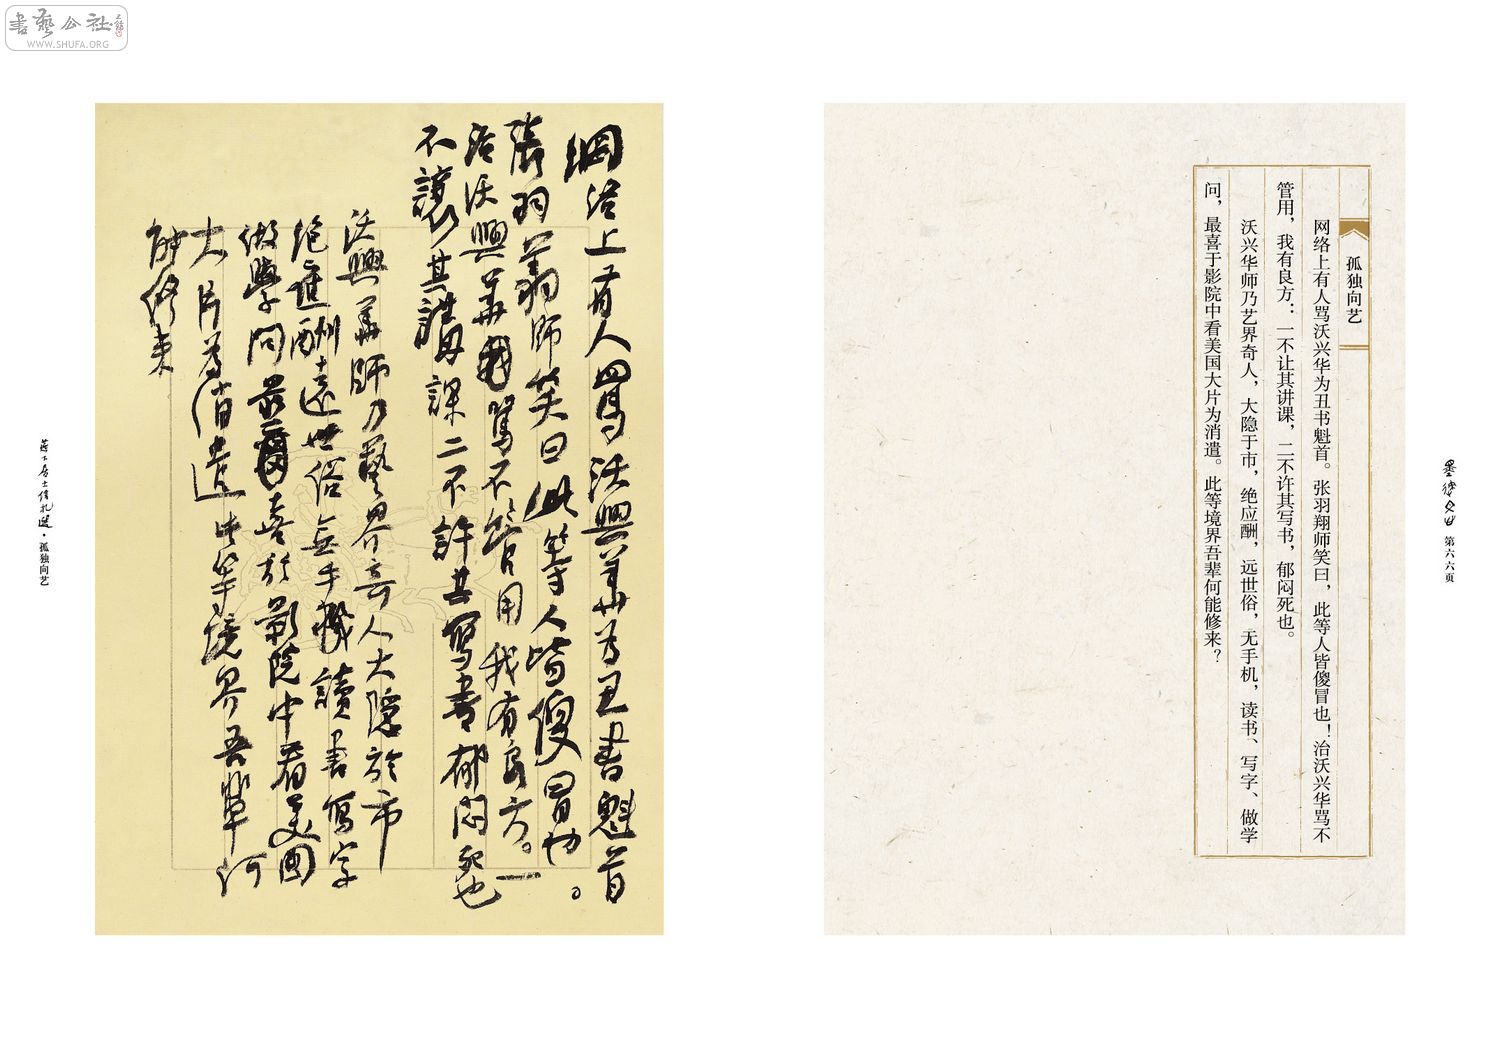 書藝公社
WWW.SHUFA.ORG
第六六页
孤独向艺
网络上有人骂沃兴华为丑书魁首。张羽翔师笑曰，此等人皆傻冒也！治沃兴华骂不
管用，我有良方：一不让其讲课，二不许其写书，郁闷死也。
沃兴华师乃艺界奇人，大隐于市，绝应酬，远世俗，无手机，读书、写字、做学
问，最喜于影院中看美国大片为消遣。此等境界吾辈何能修来？
網絡上有人罵沃興華为丑書魁首
張羽翔師笑曰此等人皆傻冒也。
治沃興華罵不管用我有良方。一
不讓其講課二不許其寫書郁悶死也
沃興華師乃藝界奇人大隱於市
绝應酬遠世俗無手機讀書寫字
做學問最喜於影院中看美國
大片为消遣此等境界吾輩何
能修来
居士信札選·孤独向艺